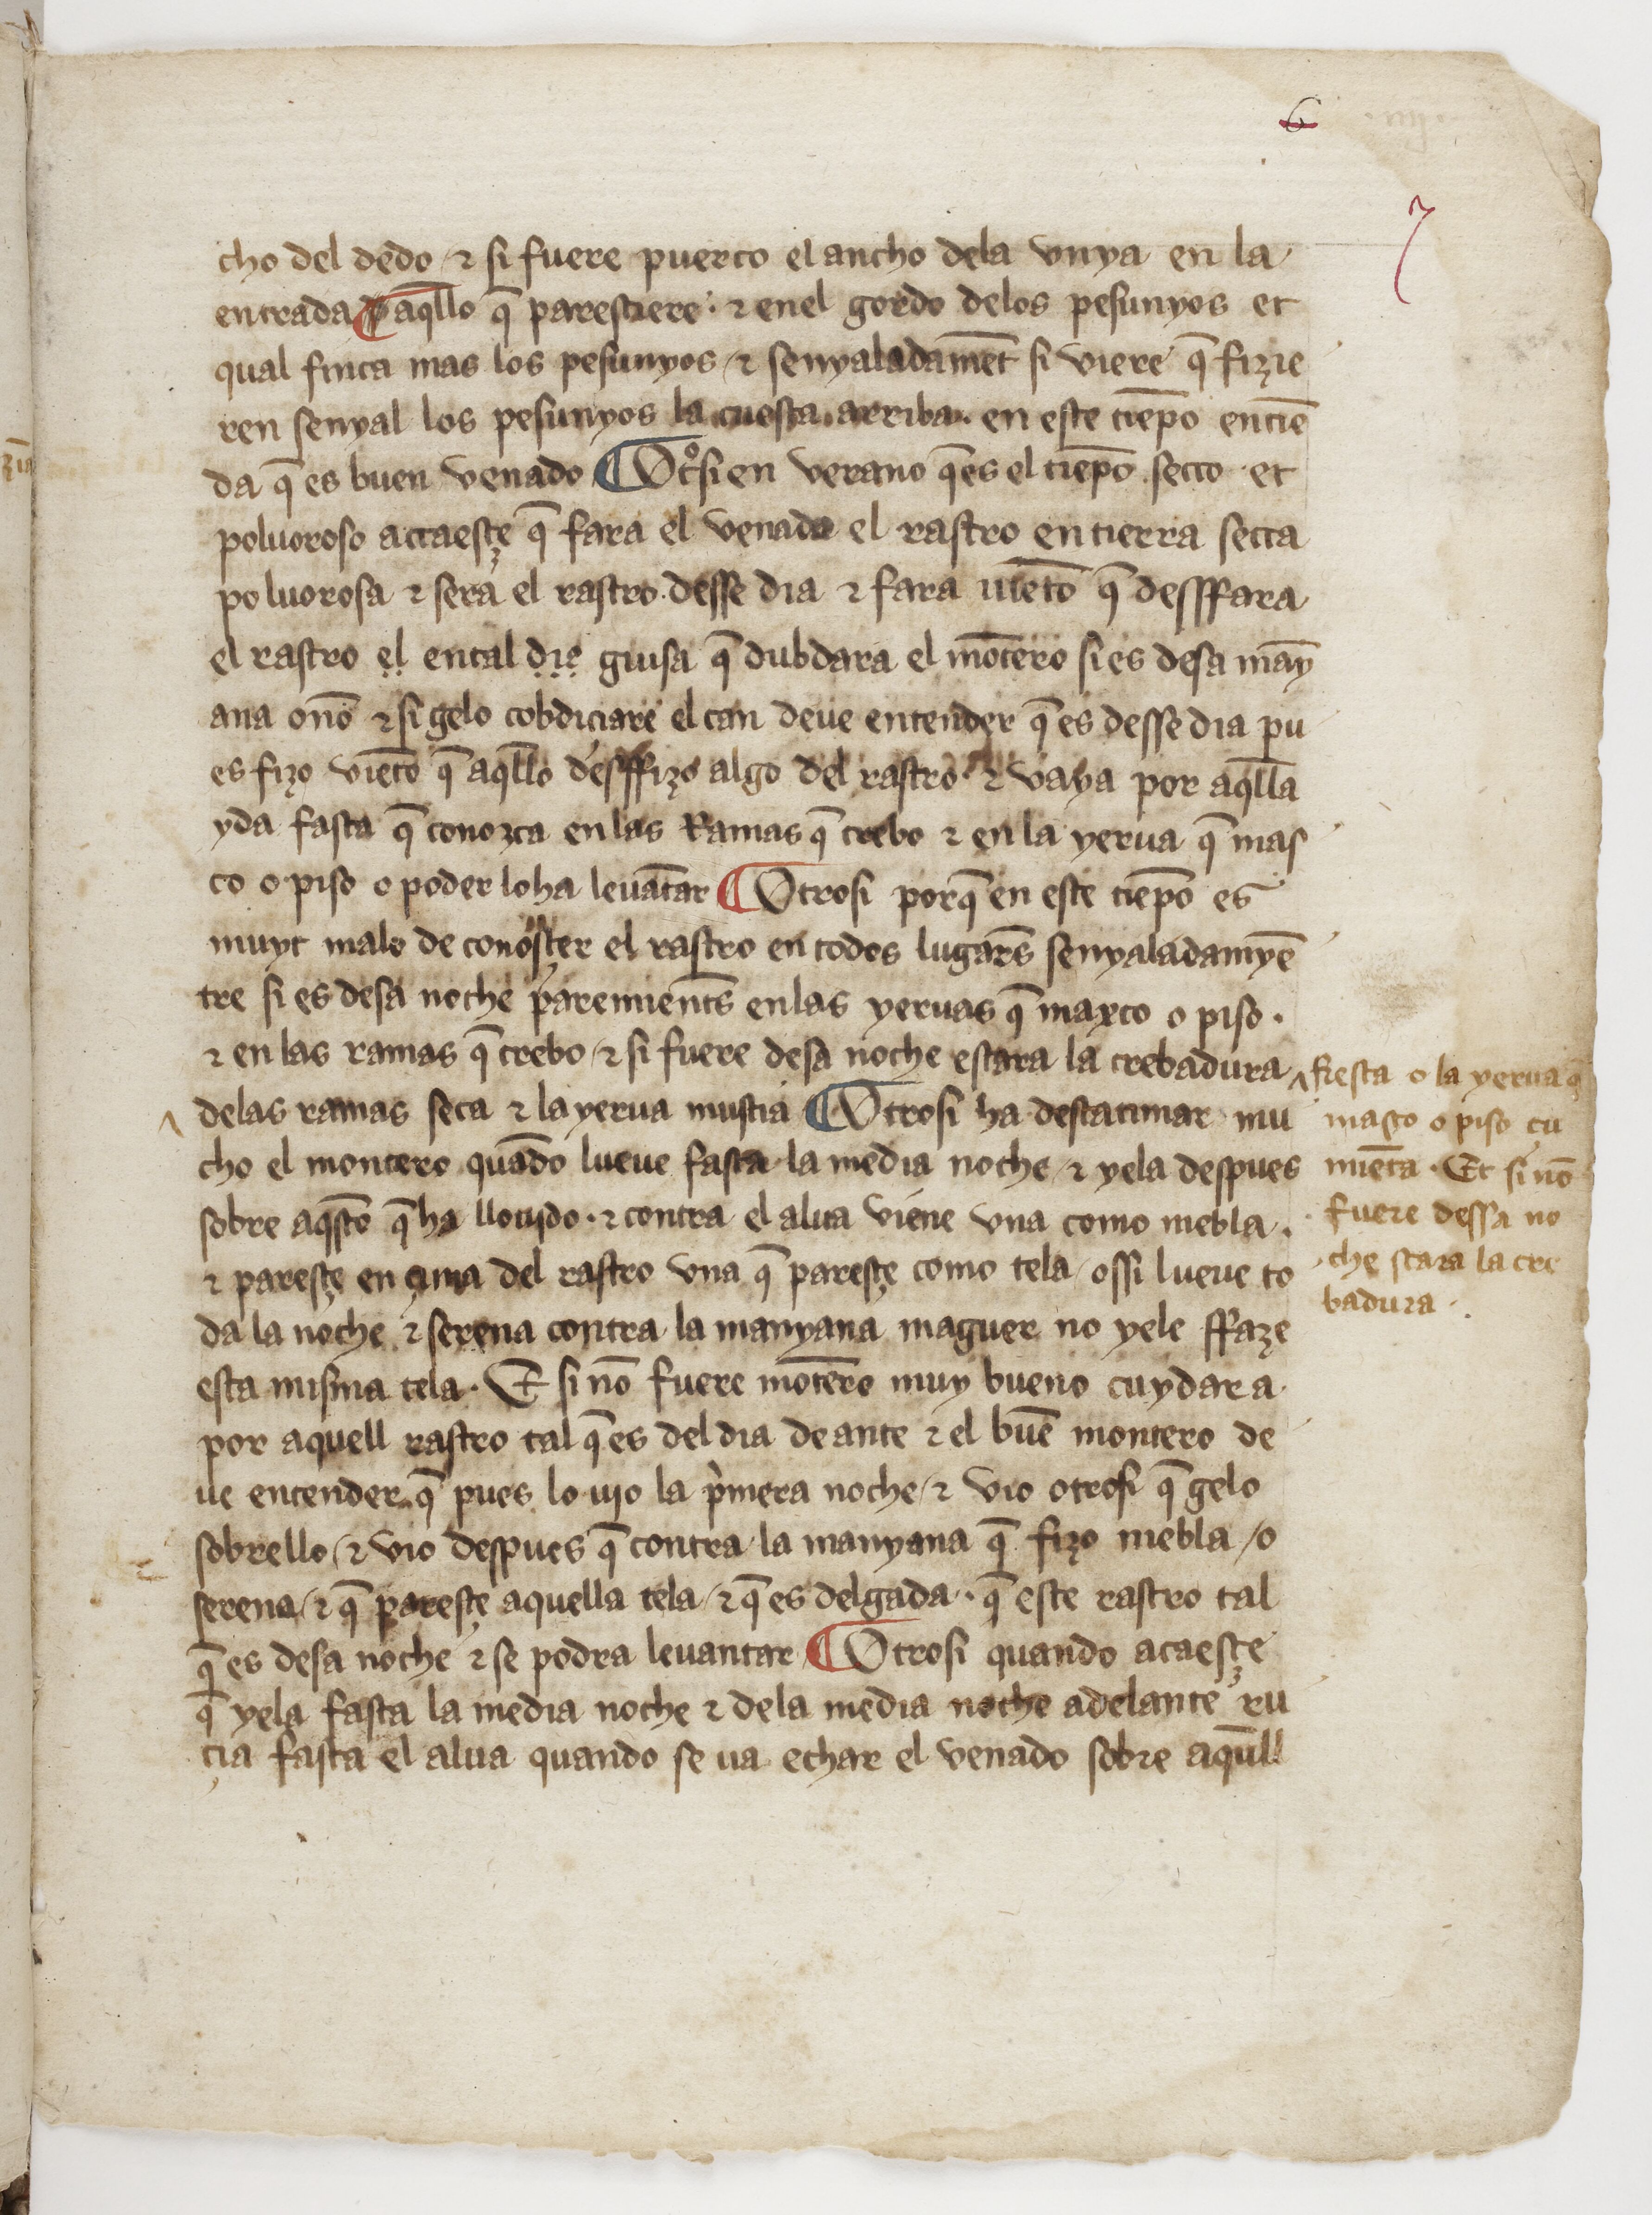 6
7
cho del dedo / ⁊ si fuere puerco el ancho dela vnya en la
entrada ¶ aq̄llo q̄ paresciere · ⁊ enel gordo delos pesunyos et
qual finca mas los pesunyos / ⁊ senyaladamēt si viere q̄ fizie
ren senyal los pesunyos la cuesta arriba · en este tiēpo entiē
da q̄ es buen venado ¶ Otºsi en verano q̄es el tiēpo secco · et
poluoroso accaesçe q̄ fara el venado el rastro en tierra secca
poluorosa ⁊ sera el rastro desse dia ⁊ fara uiēto q̄ desffara
el rastro el ental die guisa q̄ dubdara el mōtero si es desa māy
ana onō ⁊ si gelo cobdiciare el can deue entender q̄ es desse dia pu
es fizo viēto q̄ aq̄llo desffizo algo del rastro ⁊ vaya por aq̄lla
yda fasta q̄ conozca en las Ramas q̄ crebo ⁊ en la yerua q̄ mas
co o piso o poder lo ha leuātar ¶ Otrosi porq̄ en este tiēpo es
muyt malo de conosçer el rastro en todos lugar̄s senyaladamyē
tre si es desa noche paremient̄s enlas yeruas q̄ maxco o piso ·
⁊ en las ramas q̄ crebo / ⁊ si fuere desa noche estara la crebadura ^
delas ramas seca ⁊ la yerua mustia ¶ Otrosi ha destatimar mu
cho el montero quādo lueue fasta la media noche / ⁊ yela despues
sobre aq̄sto q̄ ha llouido · ⁊ contra el alua viene vna como niebla ·
⁊ paresçe en çima del rastro vna q̄ paresçe como tela / ossi lueue to
da la noche ⁊ serena contra la manyana maguer no yele ffaze
esta misma tela · Et si nō fuere mōtero muy bueno cuydara
por aquell rastro tal q̄es del dia de ante ⁊ el buē montero de
ue entender q̄ pues lo uio la pⁱmera noche / ⁊ vio otrosi q̄ gelo
sobrello / ⁊ vio despues q̄ contra la manyana q̄ fizo niebla / o
serena / ⁊ q̄ paresçe aquella tela / ⁊ q̄ es delgada · q̄ este rastro tal
q̄ es desa noche ⁊ se podra leuantar ¶ Otrosi quando acaesçe
q̄ yela fasta la media noche ⁊ dela media noche adelante ru
çia fasta el alua quando se ua echar el venado sobre aqūll
^ fiesta o la yerua q̄
masco o piso çu
miēta · Et si nō
fuere dessa no
che stara la cre
badura ·